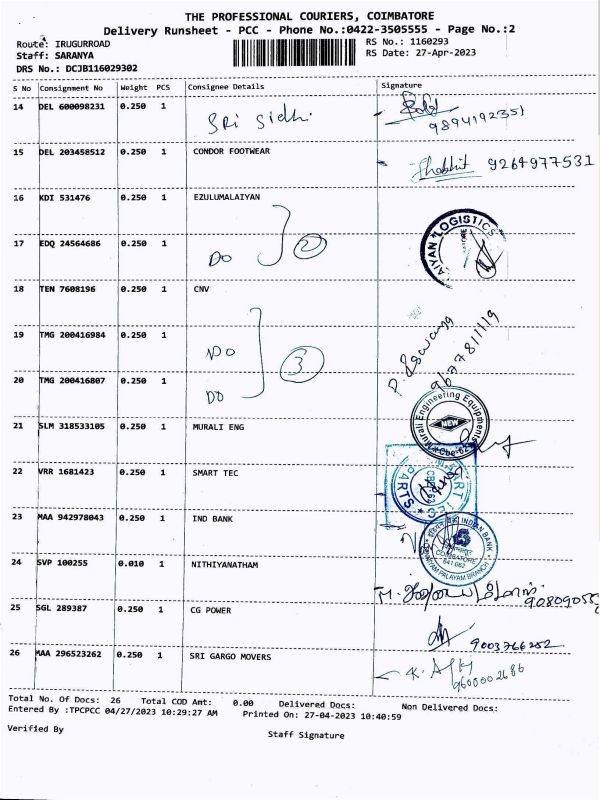 THE PROFESSIONAL COURIERS, COIMBATORE
Delivery Runsheet - PCC - Phone No.:0422-3505555 - Page No.:2
Route: IRUGURROAD RS No.: 1160293
Staff: SARANYA RS Date: 27-Apr-2023
DRS No.: DCJB116029302
S No Consignment No Weight PCS Consignee Details Signature
14 DEL 600098231 0.250 1 SRI Sidhi
9894192351
15 DEL 203458512 0.250 1 CONDOR FOOTWEAR 9264977531
16 KDI 531476 0.250 1 EZULUMALAIYAN
AIYAN LOGISTICS
17 EDQ 24564686 0.250 1 DO 2
18 TEN 7608196 0.250 1 CNV
19 TMG 200416984 0.250 1 DO 3
P. Eswarang
9677811119
20 TMG 200416807 0.250 1 DO
21 SLM 318533105 0.250 1 MURALI ENG
Murali Engineering Equipments
NEW
Cbe-62
22 VRR 1681423 0.250 1 SMART TEC
PARTS
23 MAA 942978043 0.250 1 IND BANK
INDIAN BANK
COIMBATORE
641 062
PALAYAM BRANCH
24 SVP 100255 0.010 1 NITHIYANATHAM
25 SGL 289387 0.250 1 CG POWER
9003766252
26 MAA 296523262 0.250 1 SRI GARGO MOVERS
9600002686
Total No. Of Docs: 26 Total COD Amt: 0.00 Delivered Docs: Non Delivered Docs:
Entered By :TPCPCC 04/27/2023 10:29:27 AM Printed On: 27-04-2023 10:40:59
Verified By Staff Signature